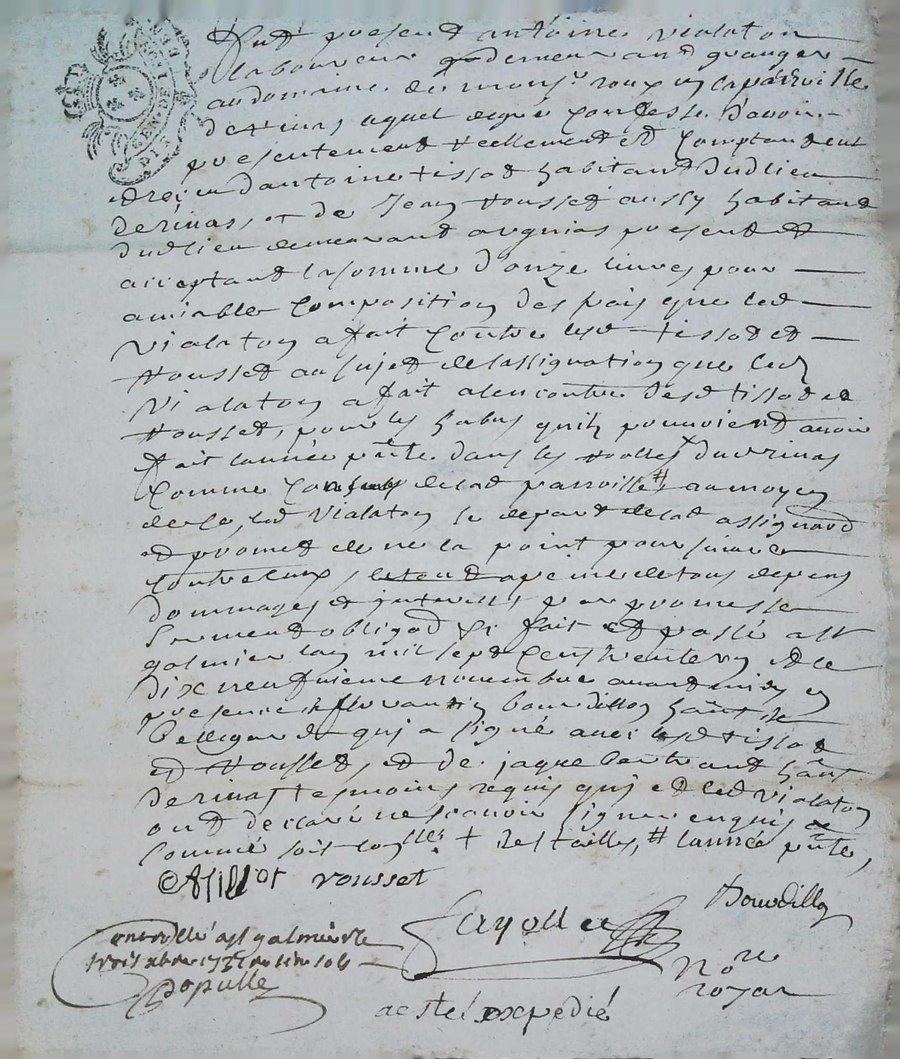 GEN DE
Fut présent antoine vialaton
laboureur demeurant granger
au domaine de monsr roux en la parroisse
de rivas lequel de gré confesse d'avoir
presentement réellement et comptant eut
et reçu d'antoine tissot habitant dudlieu
de rivas, et de Jean rousset aussy habitant
dudlieu demeurant presents et
acceptant la somme d'onze livres pour
amiable composition des frais que led
vialaton a fait contre lesd tissot et
rousset au sujet de lassignation que led
vialaton a fait alencontre desd tissot et
rousset, pour les habus quils pouvoient avoir
fait lannée pnte dans les rolles + du rivas
comme consuls de lad parroisse # au moyen
de ce, led vialaton se depart de lad assignaon
et promet de ne la point poursuivre
contre eux a peine de tous depens
dommages et interests par promesse
serment obligaon &c fait et passé a st
galmier lan mil sept cens trente sept et le
dix neufvieme novembre avant midy en
presence de florantin bourdillon hant de
bellegarde qui a signé avec lesd tissot
et rousset, et de jaque bertrand hant
de rivas tesmoins requis qui et led vialaton
ont declaré ne scavoir signer enquis et
sommé soit conllé + des tailles, # lannée pnte,
A tissot rousset
Bourdillon
fayolle
nore
royal
controllé a st galmier le
trois xbre 1737
Populle
a esté expedié